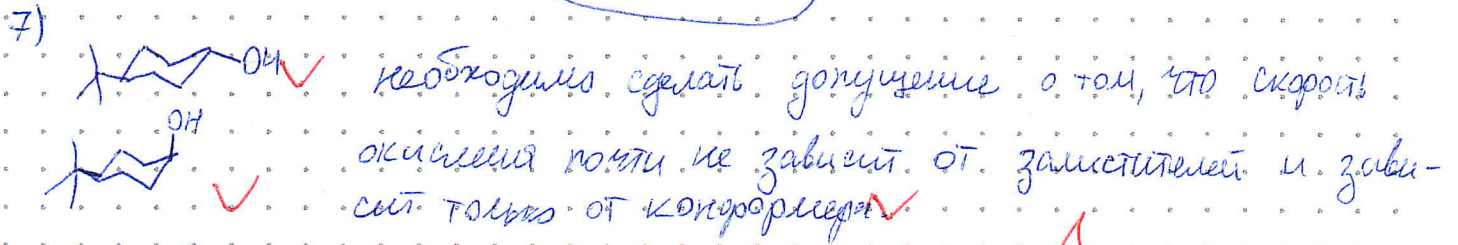 7)
OH
необходимо сделать допущение о том, что скорость
OH
окисления почти не зависит от заместителей и зави-
сит только от конформера